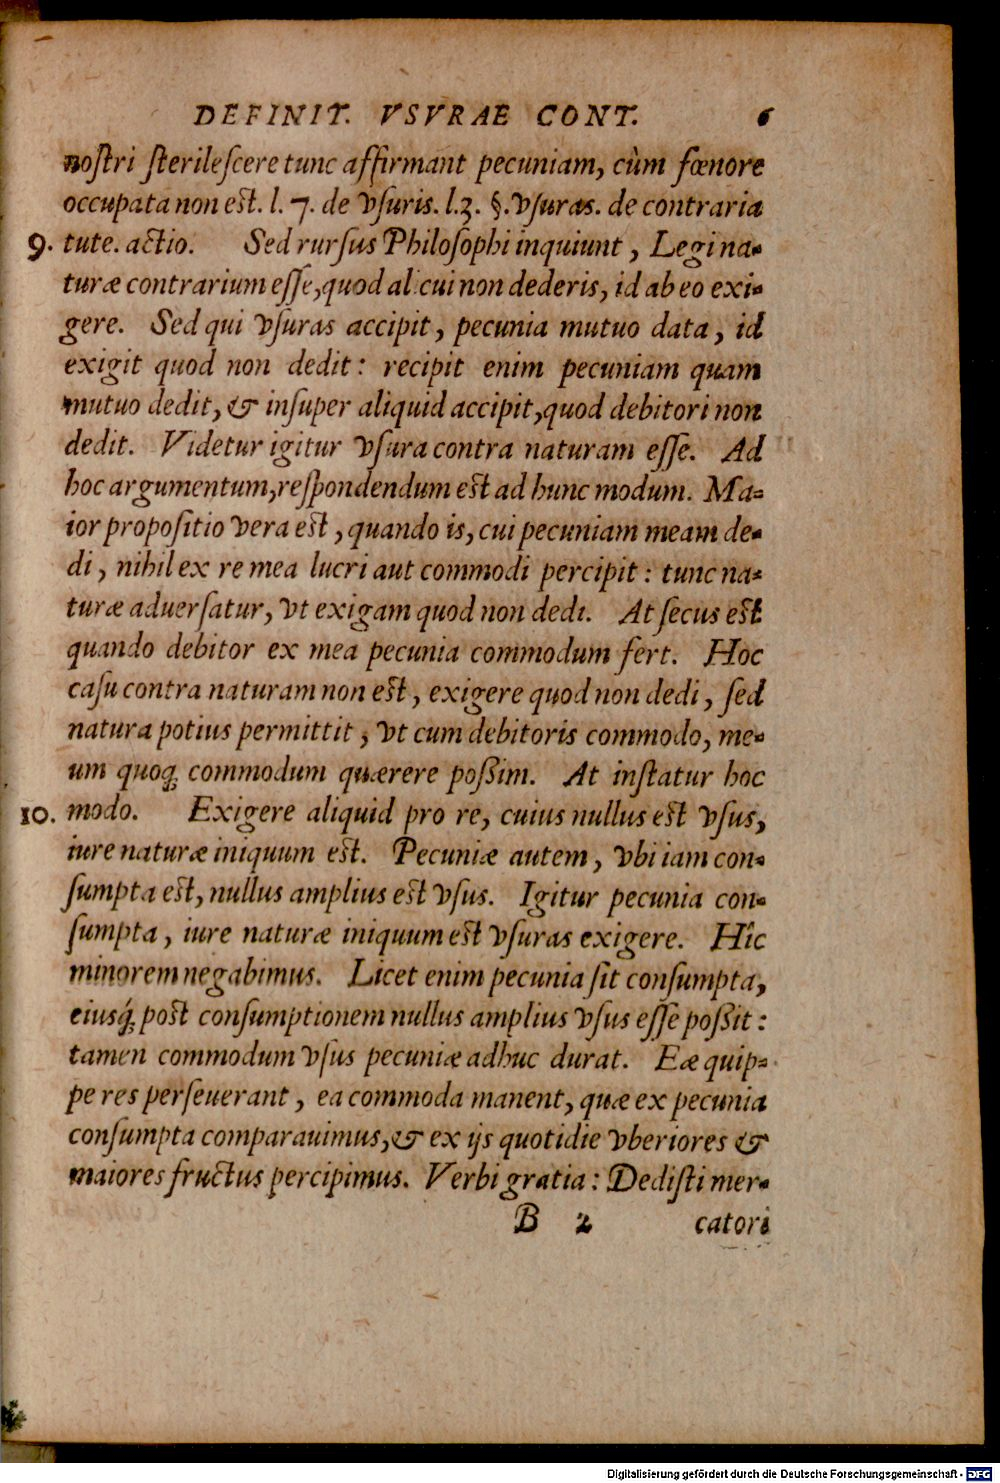 DEFINIT. VSVRAE CONT. 6
noſtri ſterileſcere tunc affirmant pecuniam, cùm fœnore
occupata non est. l. 7. de vſuris. l.3. §.vſuras. de contraria
9. tute. actio. Sed rurſus Philoſophi inquiunt, Legi na-
turæ contrarium eſſe, quod alicui non dederis, id ab eo exi-
gere. Sed qui vſuras accipit, pecunia mutuo data, id
exigit quod non dedit: recipit enim pecuniam quam
mutuo dedit, & inſuper aliquid accipit, quod debitori non
dedit. Videtur igitur vſura contra naturam eſſe. Ad
hoc argumentum, reſpondendum est ad hunc modum. Ma-
ior propoſitio vera est, quando is, cui pecuniam meam de-
di, nihil ex re mea lucri aut commodi percipit: tunc na-
turæ aduerſatur, vt exigam quod non dedi. At ſecus est
quando debitor ex mea pecunia commodum fert. Hoc
caſu contra naturam non est, exigere quod non dedi, ſed
natura potius permittit, vt cum debitoris commodo, me-
um quoq; commodum quærere poßim. At inſtatur hoc
10. modo. Exigere aliquid pro re, cuius nullus est vſus,
iure naturæ iniquum est. Pecuniæ autem, vbi iam con-
ſumpta est, nullus amplius est vſus. Igitur pecunia con-
ſumpta, iure naturæ iniquum est vſuras exigere. Hîc
minorem negabimus. Licet enim pecunia ſit conſumpta,
eiusq́; post conſumptionem nullus amplius vſus eſſe poßit:
tamen commodum vſus pecuniæ adhuc durat. Eæ quip-
pe res perſeuerant, ea commoda manent, quæ ex pecunia
conſumpta comparauimus, & ex ijs quotidie vberiores &
maiores fructus percipimus. Verbi gratia: Dediſti mer-
B 2 catori
Digitalisierung gefördert durch die Deutsche Forschungsgemeinschaft - DFG